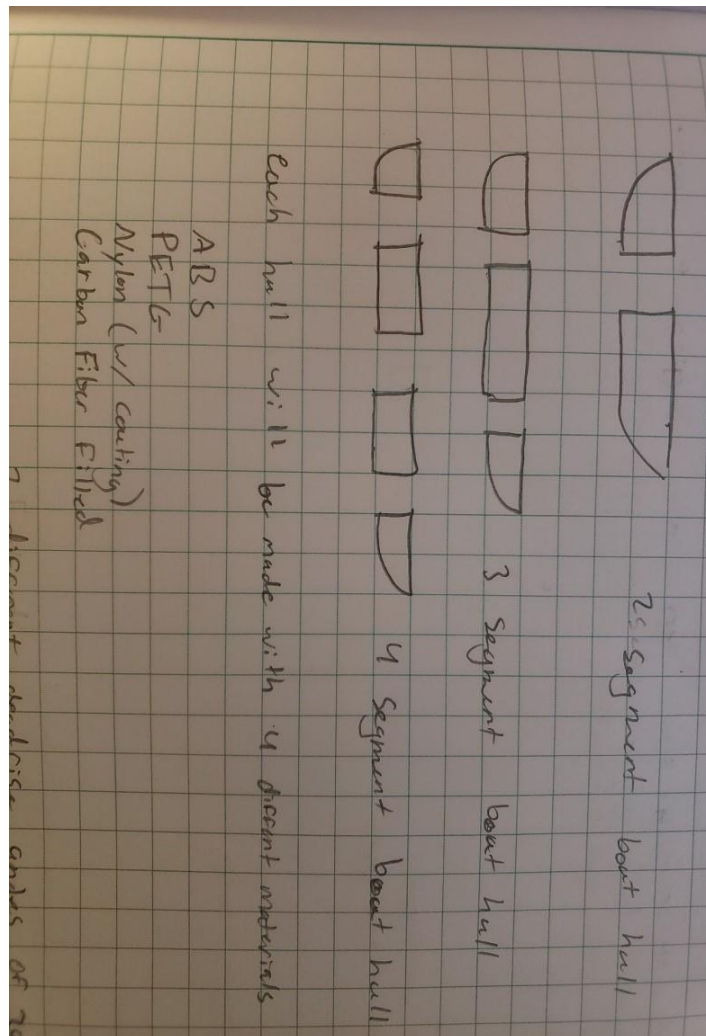 2 segment boat hull
3 segment boat hull
4 segment boat hull
Each hull will be made with 4 diffent materials
ABS
PETG
Nylon (w/ coating)
Carbon Fiber Filled
deadrise angles of